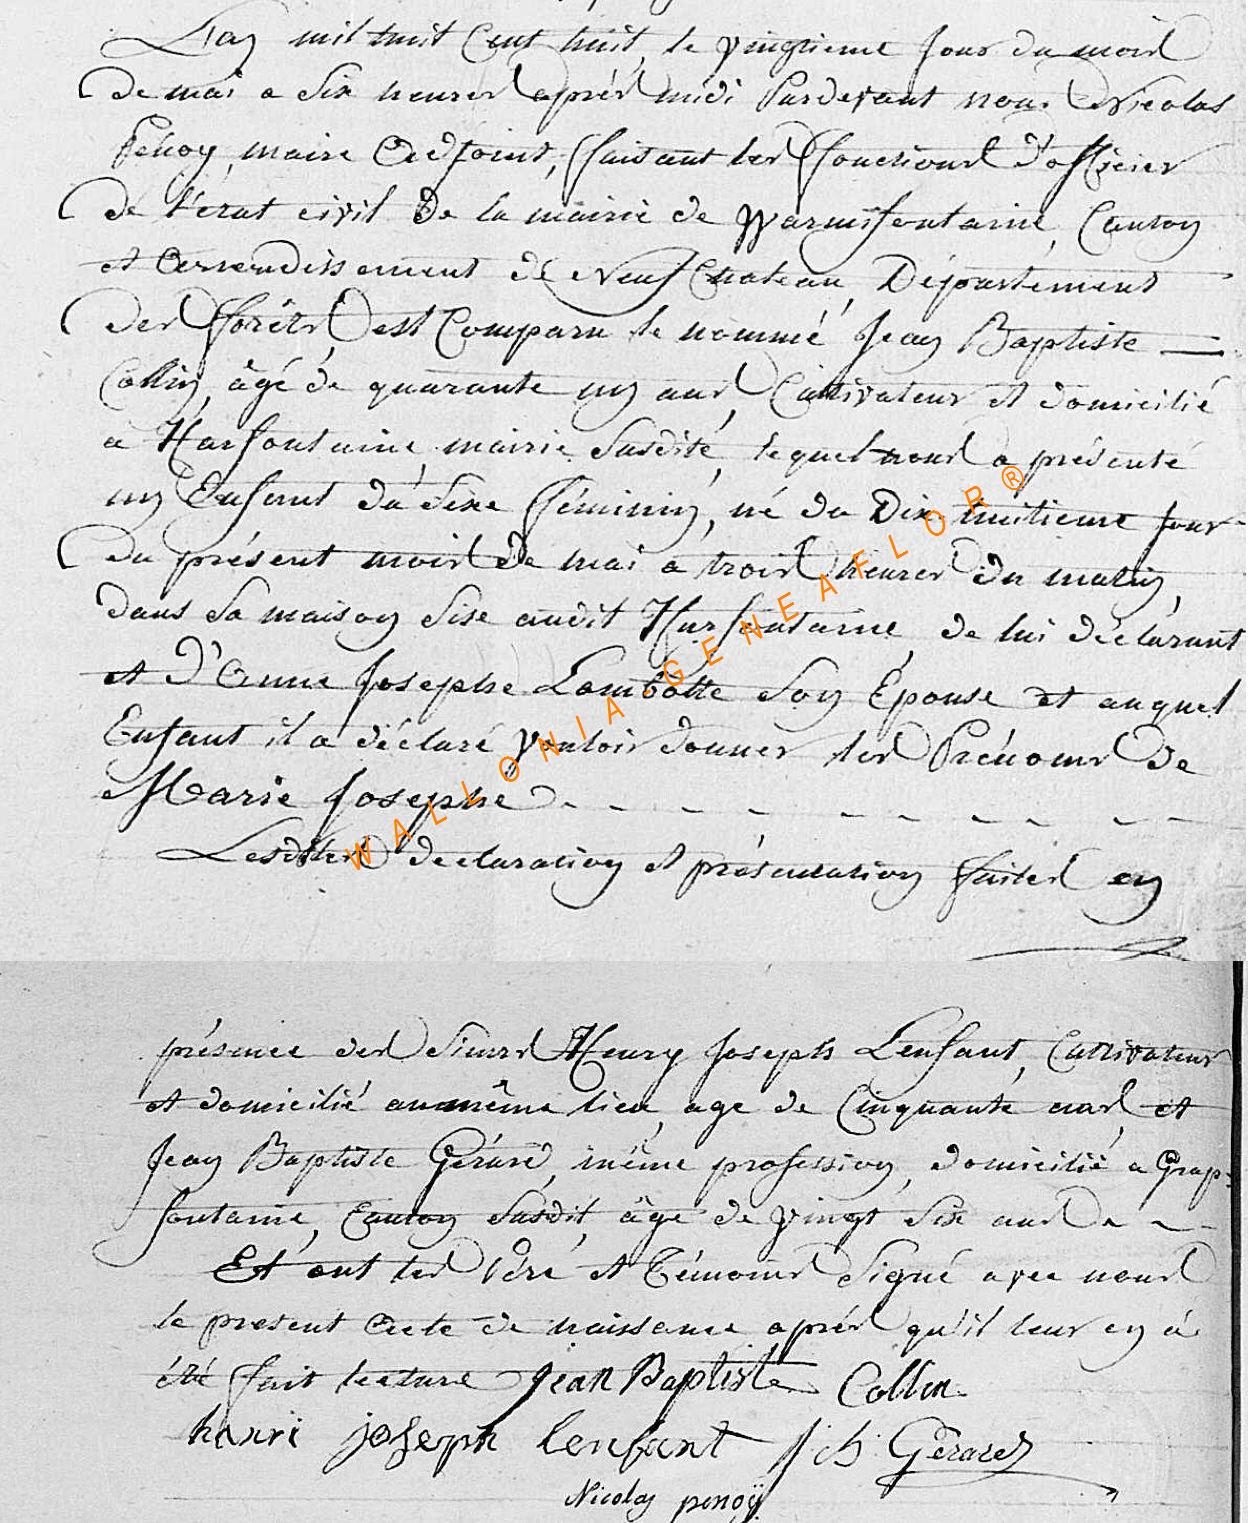 L'an mil huit Cent huit, le vingtieme jour du mois
de mai a Six heures après midi Pardevant nous Nicolas
Penoy, maire Adjoint, ffaisant les ffonctions d'officier
de l'état civil de la mairie de Warmifontaine, Canton
et Arrondissement de Neufchateau, Département
des fforêts est Comparu le nommé Jean Baptiste —
Collin, âgé de quarante un ans, Cultivateur et domicilié
a Harfontaine mairie Susdité, lequel nous a présenté
un Enfant du Sexe fféminin, né du Dix-huitieme jour
du présent mois de mai a trois heures du matin,
dans Sa maison Sise audit Harfontaine, de lui déclarant
et D'Anne Josephe Lambotte Son Épouse et auquel
Enfant il a déclaré Vouloir donner les Prénoms de
Marie Josephe - - - - - - - - -
Lesdites déclaration et présentation faites en
présence des Sieurs Henry Joseph Lenfant, Cultivateur
et domicilié au même lieu, age de Cinquante ans, et
Jean Baptiste Gérard, même profession, domicilié a Grap-
fontaine, Canton Susdit, âgé de Vingt Six ans - - -
Et ont les Père et Témoins Signé avec nous
le present Acte de naissance après qu'il leur en à
été ffait lecture Jean Baptiste Collin
henri joseph lenfant J ch Gérard
Nicolas penoÿ
WALLONIA-GENEAFLOR®